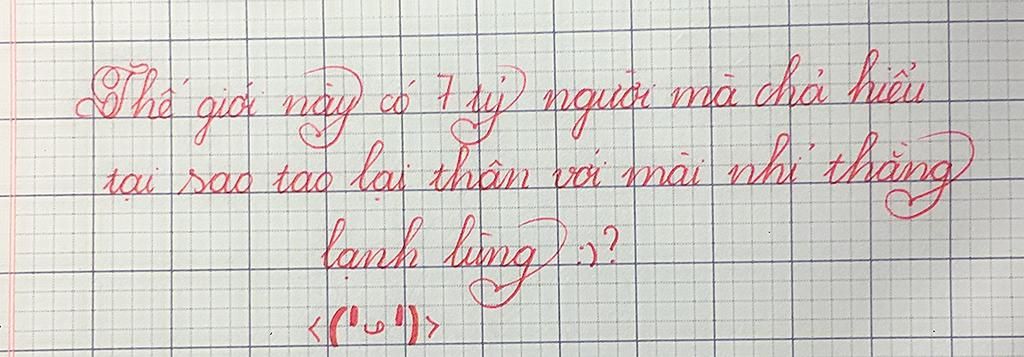 Thế giới này có 7 tỷ người mà chả hiểu
tại sao tao lại thân với mài nhỉ thằng
lạnh lùng :)?
<('ᴗ')>